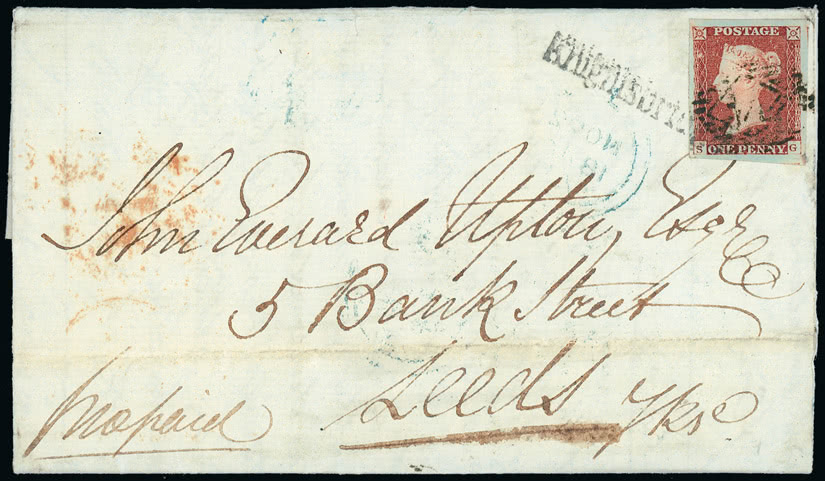 Knightsbri
POSTAGE
S ONE PENNY G
John Everard Upton, Esqr
&c
5 Bank Street
Leeds Yks
Prepaid